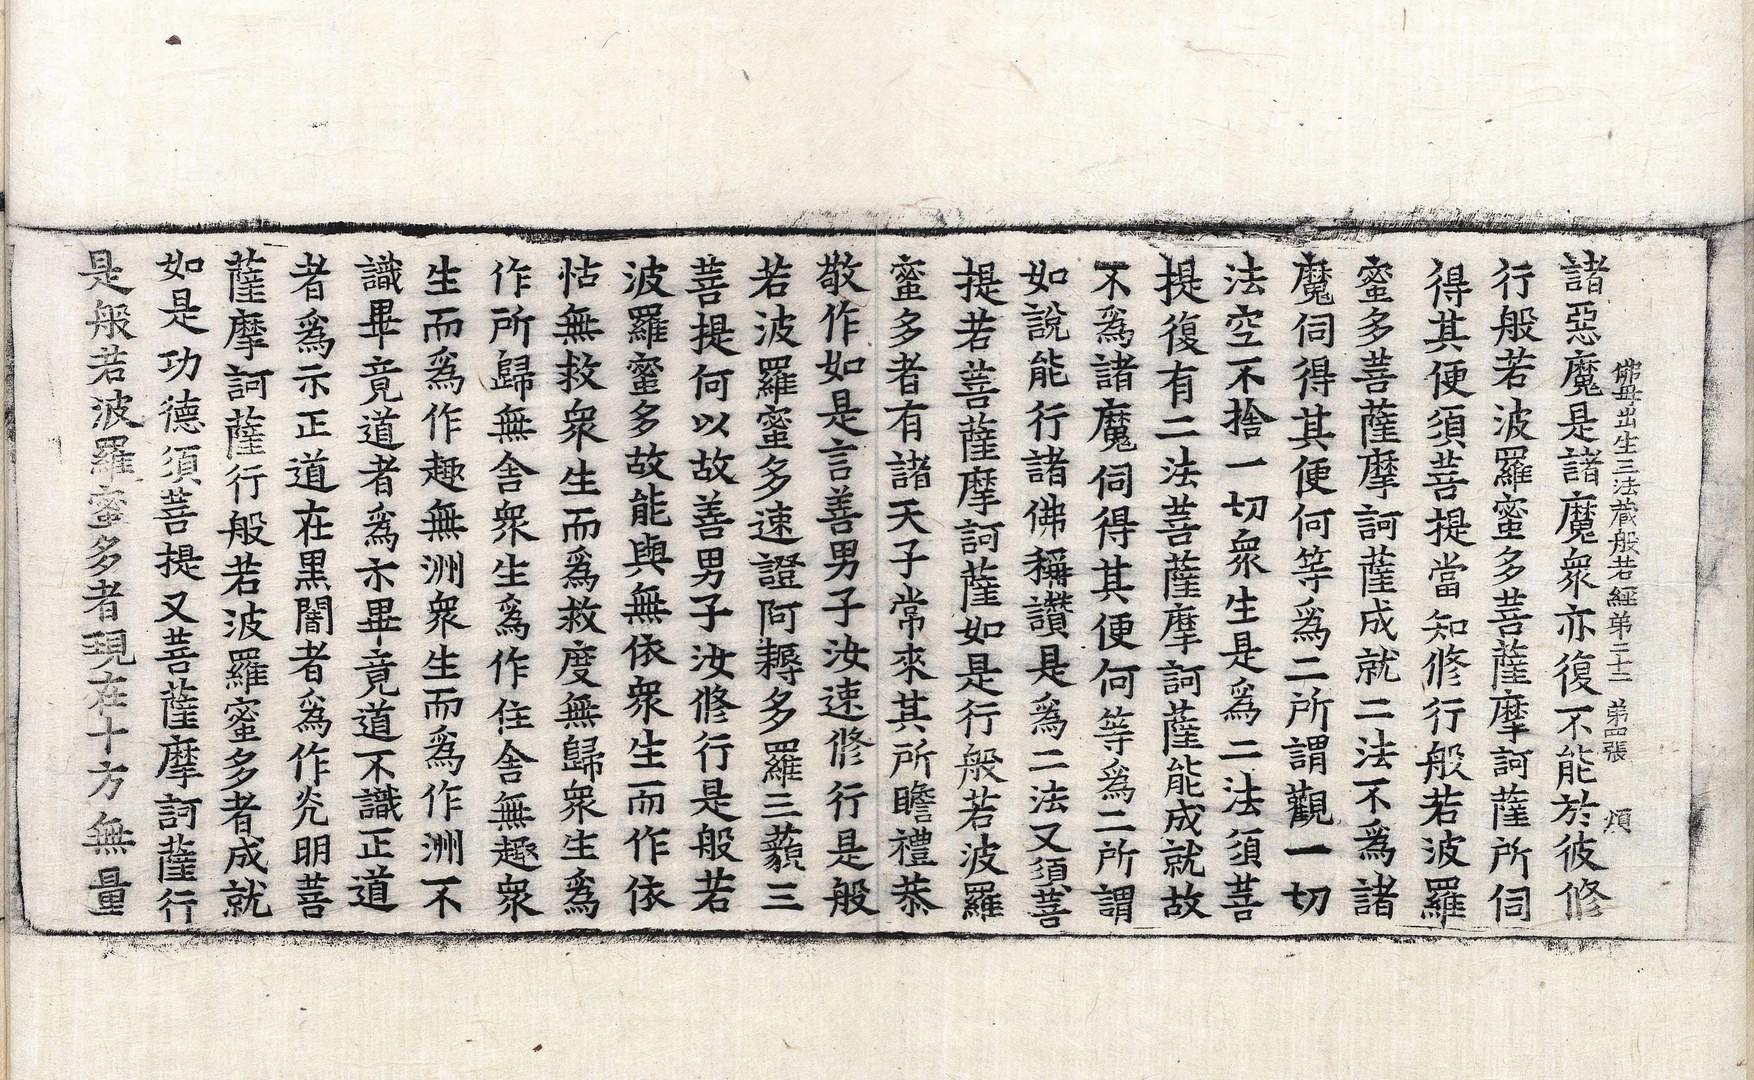 佛母出生三法藏般若經第二十二 第四張 煩
諸惡魔是諸魔衆亦復不能於彼修
行般若波羅蜜多菩薩摩訶薩所伺
得其便須菩提當知修行般若波羅
蜜多菩薩摩訶薩成就二法不爲諸
魔伺得其便何等爲二所謂觀一切
法空不捨一切衆生是爲二法須菩
提復有二法菩薩摩訶薩能成就故
不爲諸魔伺得其便何等爲二所謂
如說能行諸佛稱讚是爲二法又須菩
提若菩薩摩訶薩如是行般若波羅
蜜多者有諸天子常來其所瞻禮恭
敬作如是言善男子汝速修行是般
若波羅蜜多速證阿耨多羅三藐三
菩提何以故善男子汝修行是般若
波羅蜜多故能與無依衆生而作依
怙無救衆生而爲救度無歸衆生爲
作所歸無舍衆生爲作住舍無趣衆
生而爲作趣無洲衆生而爲作洲不
識畢竟道者爲示畢竟道不識正道
者爲示正道在黑闇者爲作光明菩
薩摩訶薩行般若波羅蜜多者成就
如是功德須菩提又菩薩摩訶薩行
是般若波羅蜜多者現在十方無量